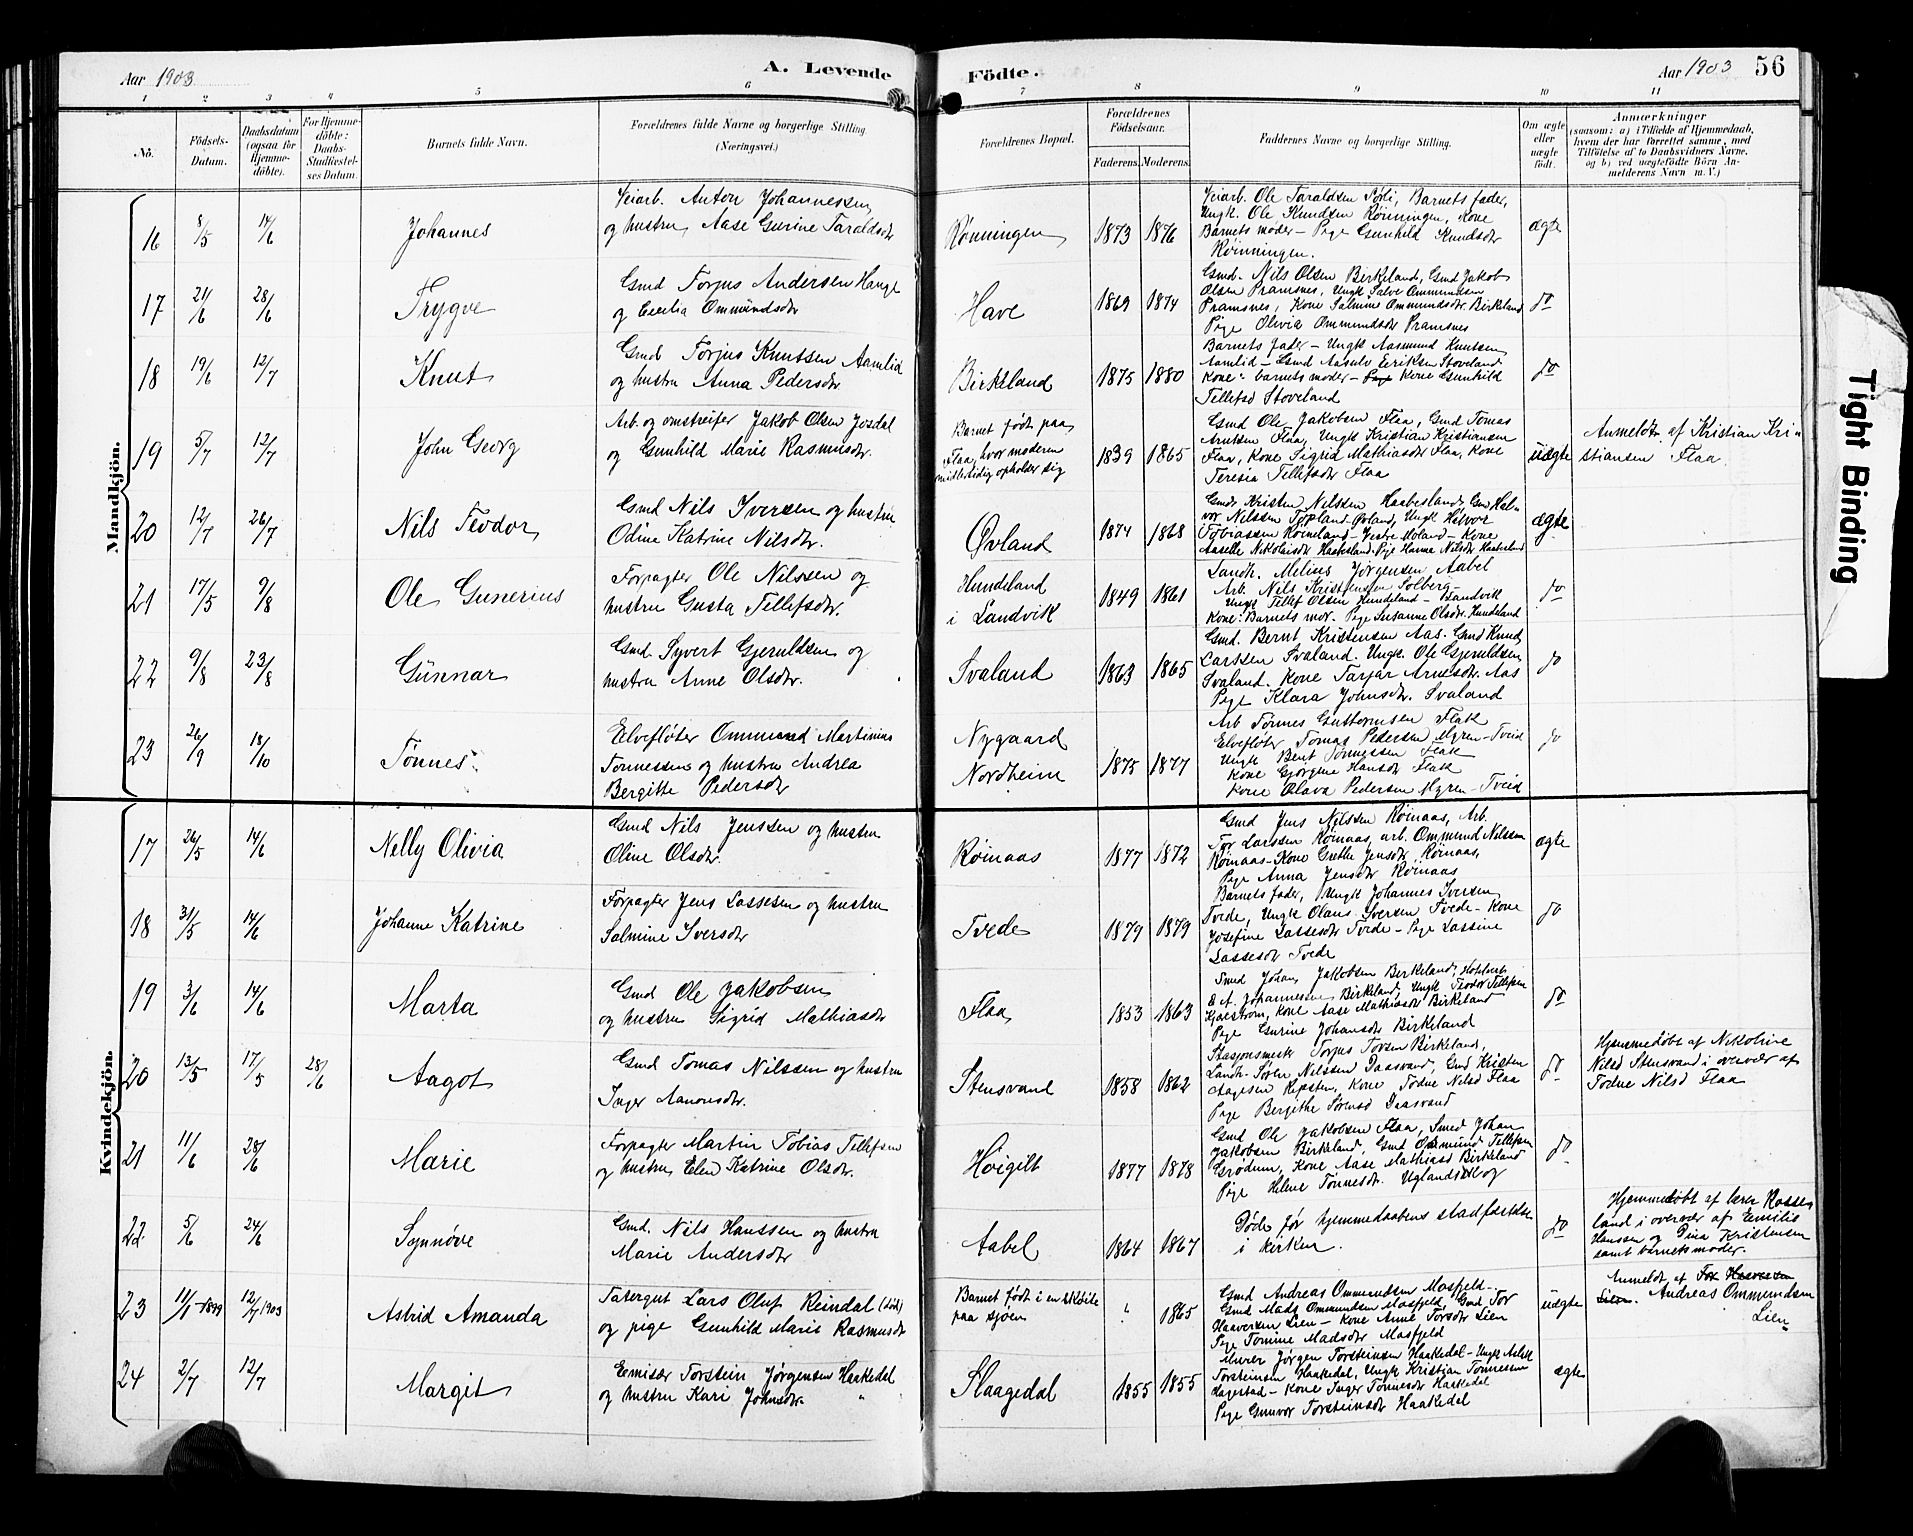 Aar 1903 A. Levende Födte. Aar 1903 56
1 2 3 4 5 6 7 8 9 10 11
No. Födsels-Datum. Daabsdatum (ogsaa for Hjemme-döbte). For Hjemme-döbte: Daabs-Stadfæstel-ses Datum. Barnets fulde Navn. Forældrenes fulde Navne og borgerlige Stilling. (Næringsvei.) Forældrenes Bopæl. Forældrenes Födselsaar. Faderens. Moderens. Faddernes Navne og borgerlige Stilling. Om ægte eller uægte födt. Anmærkninger (saasom: a) i Tilfælde af Hjemmedaab, hvem der har forrettet samme, med Tilföielse af to Daabsvidners Navne, og b) ved uægtefödte Börn An-melderens Navn m. V.)
Mandkjön.
16 8/5 14/6 Johannes
Veiarb. Anton Johannessen
og hustru Aase Gurine Taraldsdr
Rønningen 1873 1876
Veiarb. Ole Taraldsen Sørli, Barnets fader,
Ungk. Ole Knudsen Rønningen, Kone
Barnets moder – Pige Gunhild Knudsdr
Rønningen.
ægte
17 21/6 28/6 Trygve
Gmd Torjus Andersen Hauge
og Cecilia Ommundsdr
Have 1869 1874
Gmd. Nils Olsen Birkeland, Gmd Jakob
Olsen Pramsnes, Ungk Salve Ommundsen
Pramsnes, Kone Salmine Ommundsdr. Birkeland
Pige Olivia Ommundsdr Pramsnes
do
18 19/6 12/7 Knut
Gmd Torjus Knutsen Aamlid
og hustru Anna Pedersdr
Birkeland 1875 1880
Barnets fader – Ungk Aasmund Knutsen
Aamlid – Gmd Aasulv Eeriksen Stoveland
Kone: barnets moder – Pige Kone Gunhild
Tellefsd Stoveland
do
19 5/7 12/7 John Georg
Arb. og omstreifer Jakob Olsen Josdal
og Gunhild Marie Rasmusdr.
Barnet født paa
Flaa, hvor moderen
midlertidig opholder sig
1839 1865
Gmd Ole Jakobsen Flaa, Gmd Tomas
Arntsen Flaa, Ungk Kristian Kristiansen
Flaa, Kone Sigrid Mathiasdr Flaa, Kone
Teresia Tellefsdr Flaa
uægte
Anmeldt af Kristian Kri-
stiansen Flaa
20 12/7 26/7 Nils Feodor
Gmd Nils Iversen og hustru
Odine Katrine Nilsdr.
Øvland 1874 1868
Gmd. Kristen Nilssen Haabesland, Gmd Hal-
vor Nilssen Topland-Øvland, Ungk Halvor
Tobiassen Røineland – Vestre Moland – Kone
Aaselle Nikolaisdr Haabesland – Pige Hanna Nilsdr Haabesland
ægte
21 17/5 9/8 Ole Gunerius
Forpagter Ole Nilssen og
hustru Gusta Tellefsdr.
Hundeland
i Landvik
1849 1861
Landh. Melius Jørgensen Aabel
Arb. Nils Kristensen Solberg –
Ungk Tellef Olsen Hundeland – Landvik
Kone: Barnets mor. Pige Susanne Olsdr. Hundeland
do
22 9/8 23/8 Gunnar
Gmd. Syvert Gjeruldsen og
hustru Anne Olsdr.
Svaland 1863 1865
Gmd. Bernt Kristensen Aas. Gmd Knud
Larssen Svaland. Ungk. Ole Gjeruldsen
Svaland. Kone Tarjær Arnesdr. Aas
Pige Klara Johnsdr. Svaland
do
23 26/9 18/10 Tønnes
Elvefløter Ommund Martinius
Tønnessen og hustru Andrea
Bergitte Pedersdr
Nygaard
Nordheim
1875 1877
Arb Tønnes Guttormsen Flak
Elvefløter Tomas Pedersen Myren-Tveid
Ungk Bent Tønnessen Flak
Kone Gjorgine Hansdr Flak
Kone Olava Pedersen Myren-Tveid
do
Kvindekjön.
17 26/5 14/6 Nelly Olivia
Gmd Nils Jenssen og hustru
Oline Olsdr.
Røinaas 1877 1872
Gmd Jens Nilssen Røinaas, Arb.
Tor Larssen Røinaas, arb. Ommund Nilssen
Røinaas – Kone Grethe Jensdr. Røinaas,
Pige Anna Jensdr Røinaas
ægte
18 31/5 14/6 Johanne Katrine
Forpagter Jens Lassesen og hustru
Salmine Iversdr
Tvede 1879 1879
Barnets fader, Ungk Johannes Iversen
Tvede, Ungk Olaus Iversen Tvede – Kone
Josefine Lassesdr Tvede – Pige Lassine
Lassesdr Tvede
do
19 3/6 14/6 Marta
Gmd Ole Jakobsen
og hustru Sigrid Mathiasdr
Flaa 1853 1863
Smed Johan Jakobsen Birkeland,
Johannessen Birkeland, Ungk Feodor Tellefsen
Kjølstrøm, Kone Aase Mathiasdr Birkeland
Pige Gurine Johansdr Birkeland
do
20 13/5 17/5 28/6 Aagot
Gmd Tomas Nilssen og hustru
Inger Aanonsdr.
Stensvand 1858 1862
Stasjonsmest Torjus Torsen Birkeland,
Landh. Søren Nilssen Daasvand, Gmd Kristen
Aagesen Repsten, Kone Todne Nilsd Flaa
Pige Bergithe Sørensd Daasvand
do
Hjemmedøbt af Nikoline
Nilsd Stensvand i overvær af
Todne Nilsd Flaa
21 11/6 28/6 Marie
Forpagter Martin Tobias Tellefsen
og hustru Elen Katrine Olsdr.
Høigilt 1877 1878
Gmd Ole Jakobsen Flaa, Smed Johan
Jakobsen Birkeland, Gmd Osmund Tellefsen
Grødum, Kone Aase Mathiasd Birkeland
Pige Helene Tønnesdr. Uglandsskog
do
22 5/6 24/6 Synnøve
Gmd. Nils Hanssen og hustru
Marie Andersdr
Aabel 1864 1867
Døde før hjemmedaabens stadfæstelse
i kirken.
do
Hjemmedøbt af lærer Rosse-
land i overvær af Emilie
Hanssen og Pina Kristensen
samt barnets moder.
23 11/1-1899 12/7 1903 Astrid Amanda
Tatergut Lars Oluf Reindal (død)
og pige Gunhild Marie Rasmusdr
Barnet født i en skøite
paa sjøen
" 1865
Gmd Andreas Ommundsen Mosfjeld –
Gmd Mads Ommundsen Mosfjeld, Gmd Tor
Haaversen Lien – Kone Anne Torsdr Lien
Pige Tomine Madsdr Mosfjeld
uægte
Anmeldt af Tor Haaversen
Lien. Andreas Ommundsen
Lien
24 2/7 12/7 Margit
Emisær Torstein Jørgensen Haakedal
og hustru Kari Johnsdr. "
Haagedal 1855 1855
Murer Jørgen Torsteinsen Haakedal – Ungk Aslak
Torsteinsen Haakedal, Ungk Kristian Tønnessen
Lagestad – Kone Inger Tønnesdr Haakedal
Pige Gunvor Torsteinsdr Haakedal
ægte
Tight Binding